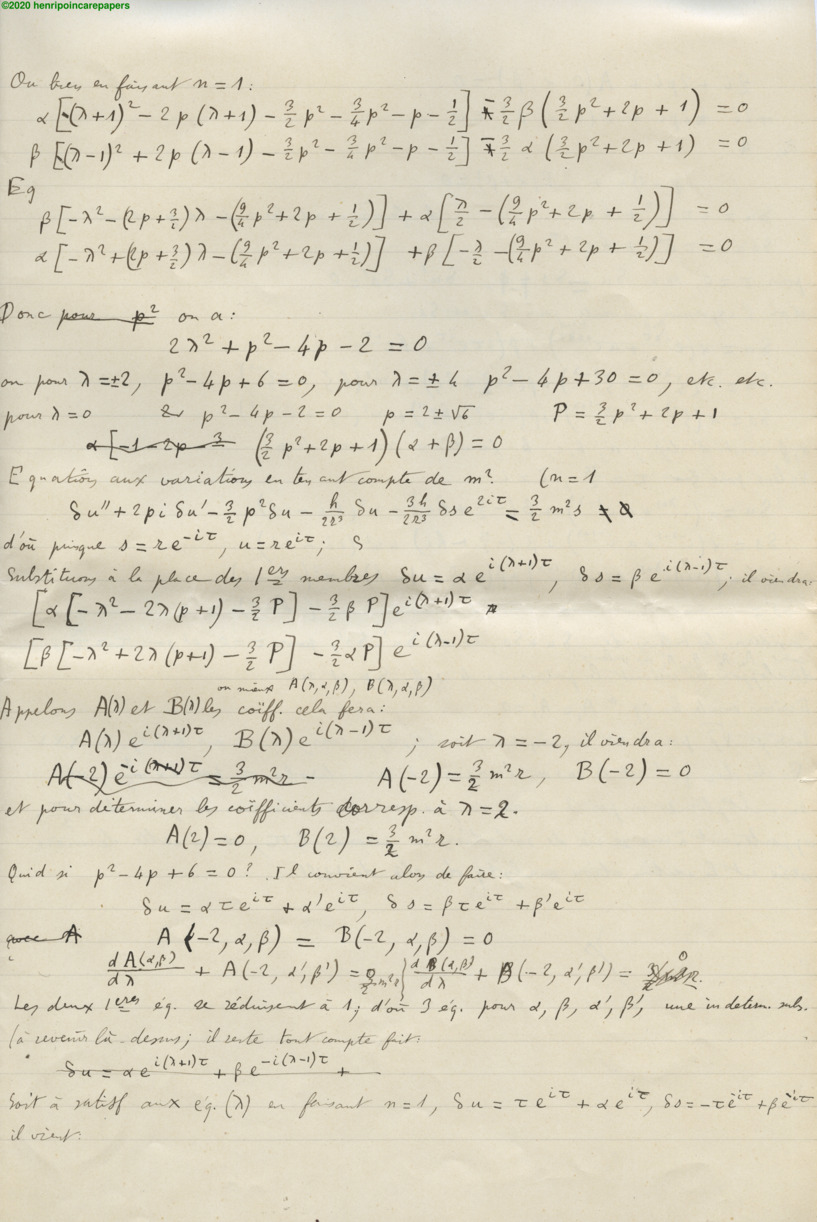 ©2020 henripoincarepapers
Ou bien en faisant n = 1:
α [-(λ+1)² - 2p (λ+1) - 3/2 p² - 3/4 p² - p - 1/2] - 3/2 β (3/2 p² + 2p + 1) = 0
β [-(λ-1)² + 2p (λ-1) - 3/2 p² - 3/4 p² - p - 1/2] - 3/2 α (3/2 p² + 2p + 1) = 0
Eq
β [-λ² - (2p + 3/2) λ - (9/4 p² + 2p + 1/2)] + α [λ/2 - (9/4 p² + 2p + 1/2)] = 0
α [-λ² + (2p + 3/2) λ - (9/4 p² + 2p + 1/2)] + β [-λ/2 - (9/4 p² + 2p + 1/2)] = 0
Donc pour p² on a:
2λ² + p² - 4p - 2 = 0
on pour λ = ±2, p² - 4p + 6 = 0, pour λ = ± 4 p² - 4p + 30 = 0, etc. etc.
pour λ = 0 p² - 4p - 2 = 0 p = 2 ± √6 P = 3/2 p² + 2p + 1
α [-1 - 2p - 3 (3/2 p² + 2p + 1) (α + β) = 0
Equations aux variations en tenant compte de m². (n = 1
δu'' + 2pi δu' - 3/2 p² δu - h/2r³ δu - 3h/2r³ δs e^{2iτ} = 3/2 m² s
d'où puisque s = r e^{-iτ}, u = r e^{iτ}; S
Substituons à la place des 1ers membres δu = α e^{i(λ+1)τ}, δs = β e^{i(λ-1)τ}; il viendra:
[α [-λ² - 2λ(p+1) - 3/2 P] - 3/2 β P] e^{i(λ+1)τ}
[β [-λ² + 2λ (p+1) - 3/2 P] - 3/2 α P] e^{i(λ-1)τ}
ou mieux A(λ,α,β), B(λ,α,β)
Appelons A(λ) et B(λ) les coëff. cela fera:
A(λ) e^{i(λ+1)τ}, B(λ) e^{i(λ-1)τ} ; soit λ = -2, il viendra:
A(-2) e^{-i(λ+1)τ} = 3/2 m² r - A(-2) = 3/2 m² r, B(-2) = 0
et pour déterminer les coëfficients corresp. à λ = 2.
A(2) = 0, B(2) = 3/2 m² r.
Quid si p² - 4p + 6 = 0? Il convient alors de faire:
δu = α τ e^{iτ} + α' e^{iτ}, δs = β τ e^{iτ} + β' e^{iτ}
avec A A (-2, α, β) = B(-2, α, β) = 0
dA(α,β)/dλ + A(-2, α', β') = 3/2 m² r } dB(α,β)/dλ + B(-2, α', β') = 0
Les deux 1eres éq. se réduisent à 1; d'où 3 éq. pour α, β, α', β', une indeterm. subs.
(à revenir là-dessus; il reste tout compte fait:
δu = α e^{i(λ+1)τ} + β e^{-i(λ-1)τ} +
Soit à satisf aux éq. (λ) en faisant n = 1, δu = τ e^{iτ} + α e^{iτ}, δs = -τ e^{-iτ} + β e^{-iτ}
il vient: